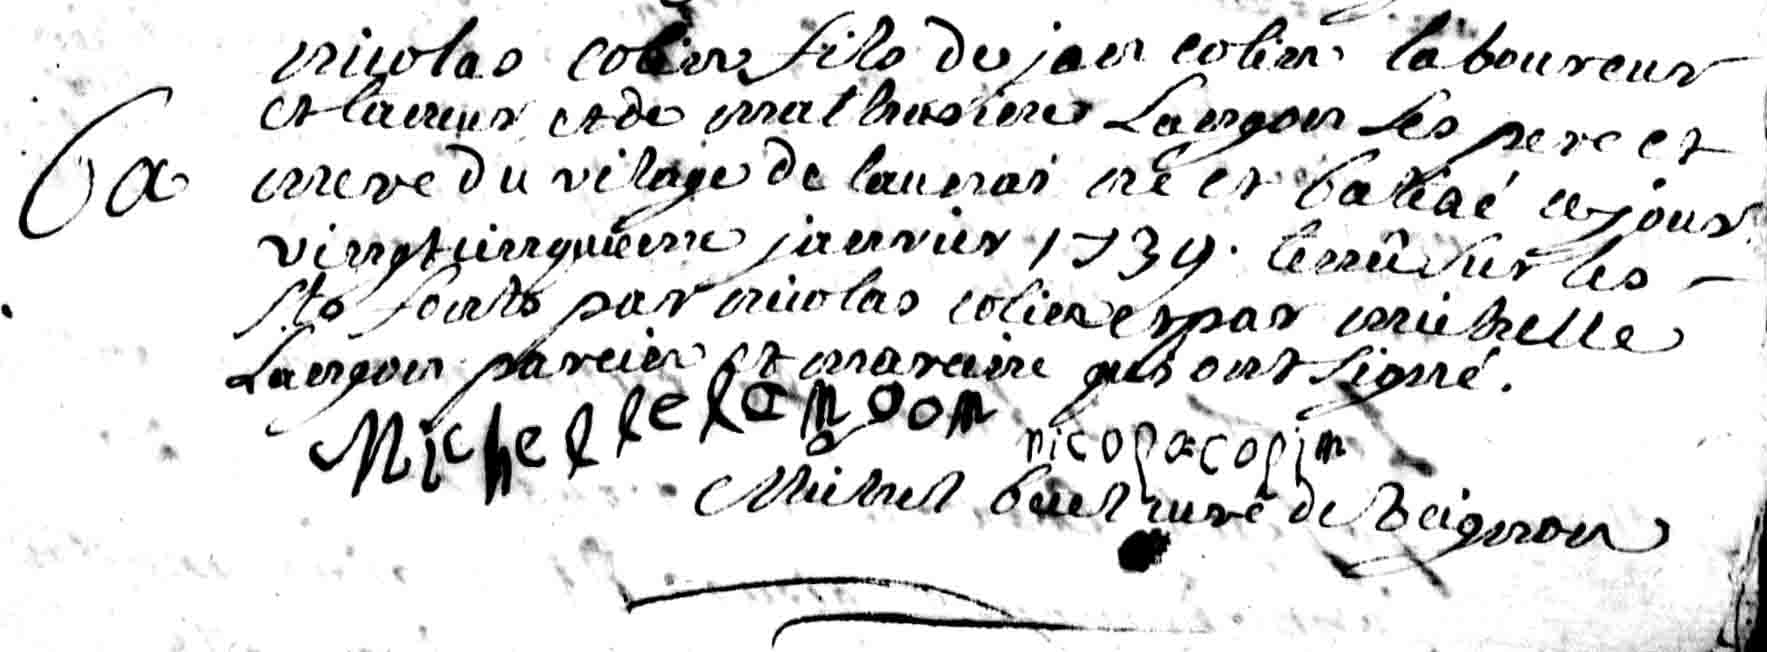 nicolas colin fils de jan colin laboureur
et laneur et de mathurine Langon ses pere et
6a mere du vilage de launai né et batisé ce jour
vingtcinquieme janvier 1739. tenû sur les
sts fonts par nicolas colin et par michelle
Langon parein et mareine qui ont signé.
Michelle langon nicolacolin
Michel buet curé de Beignon